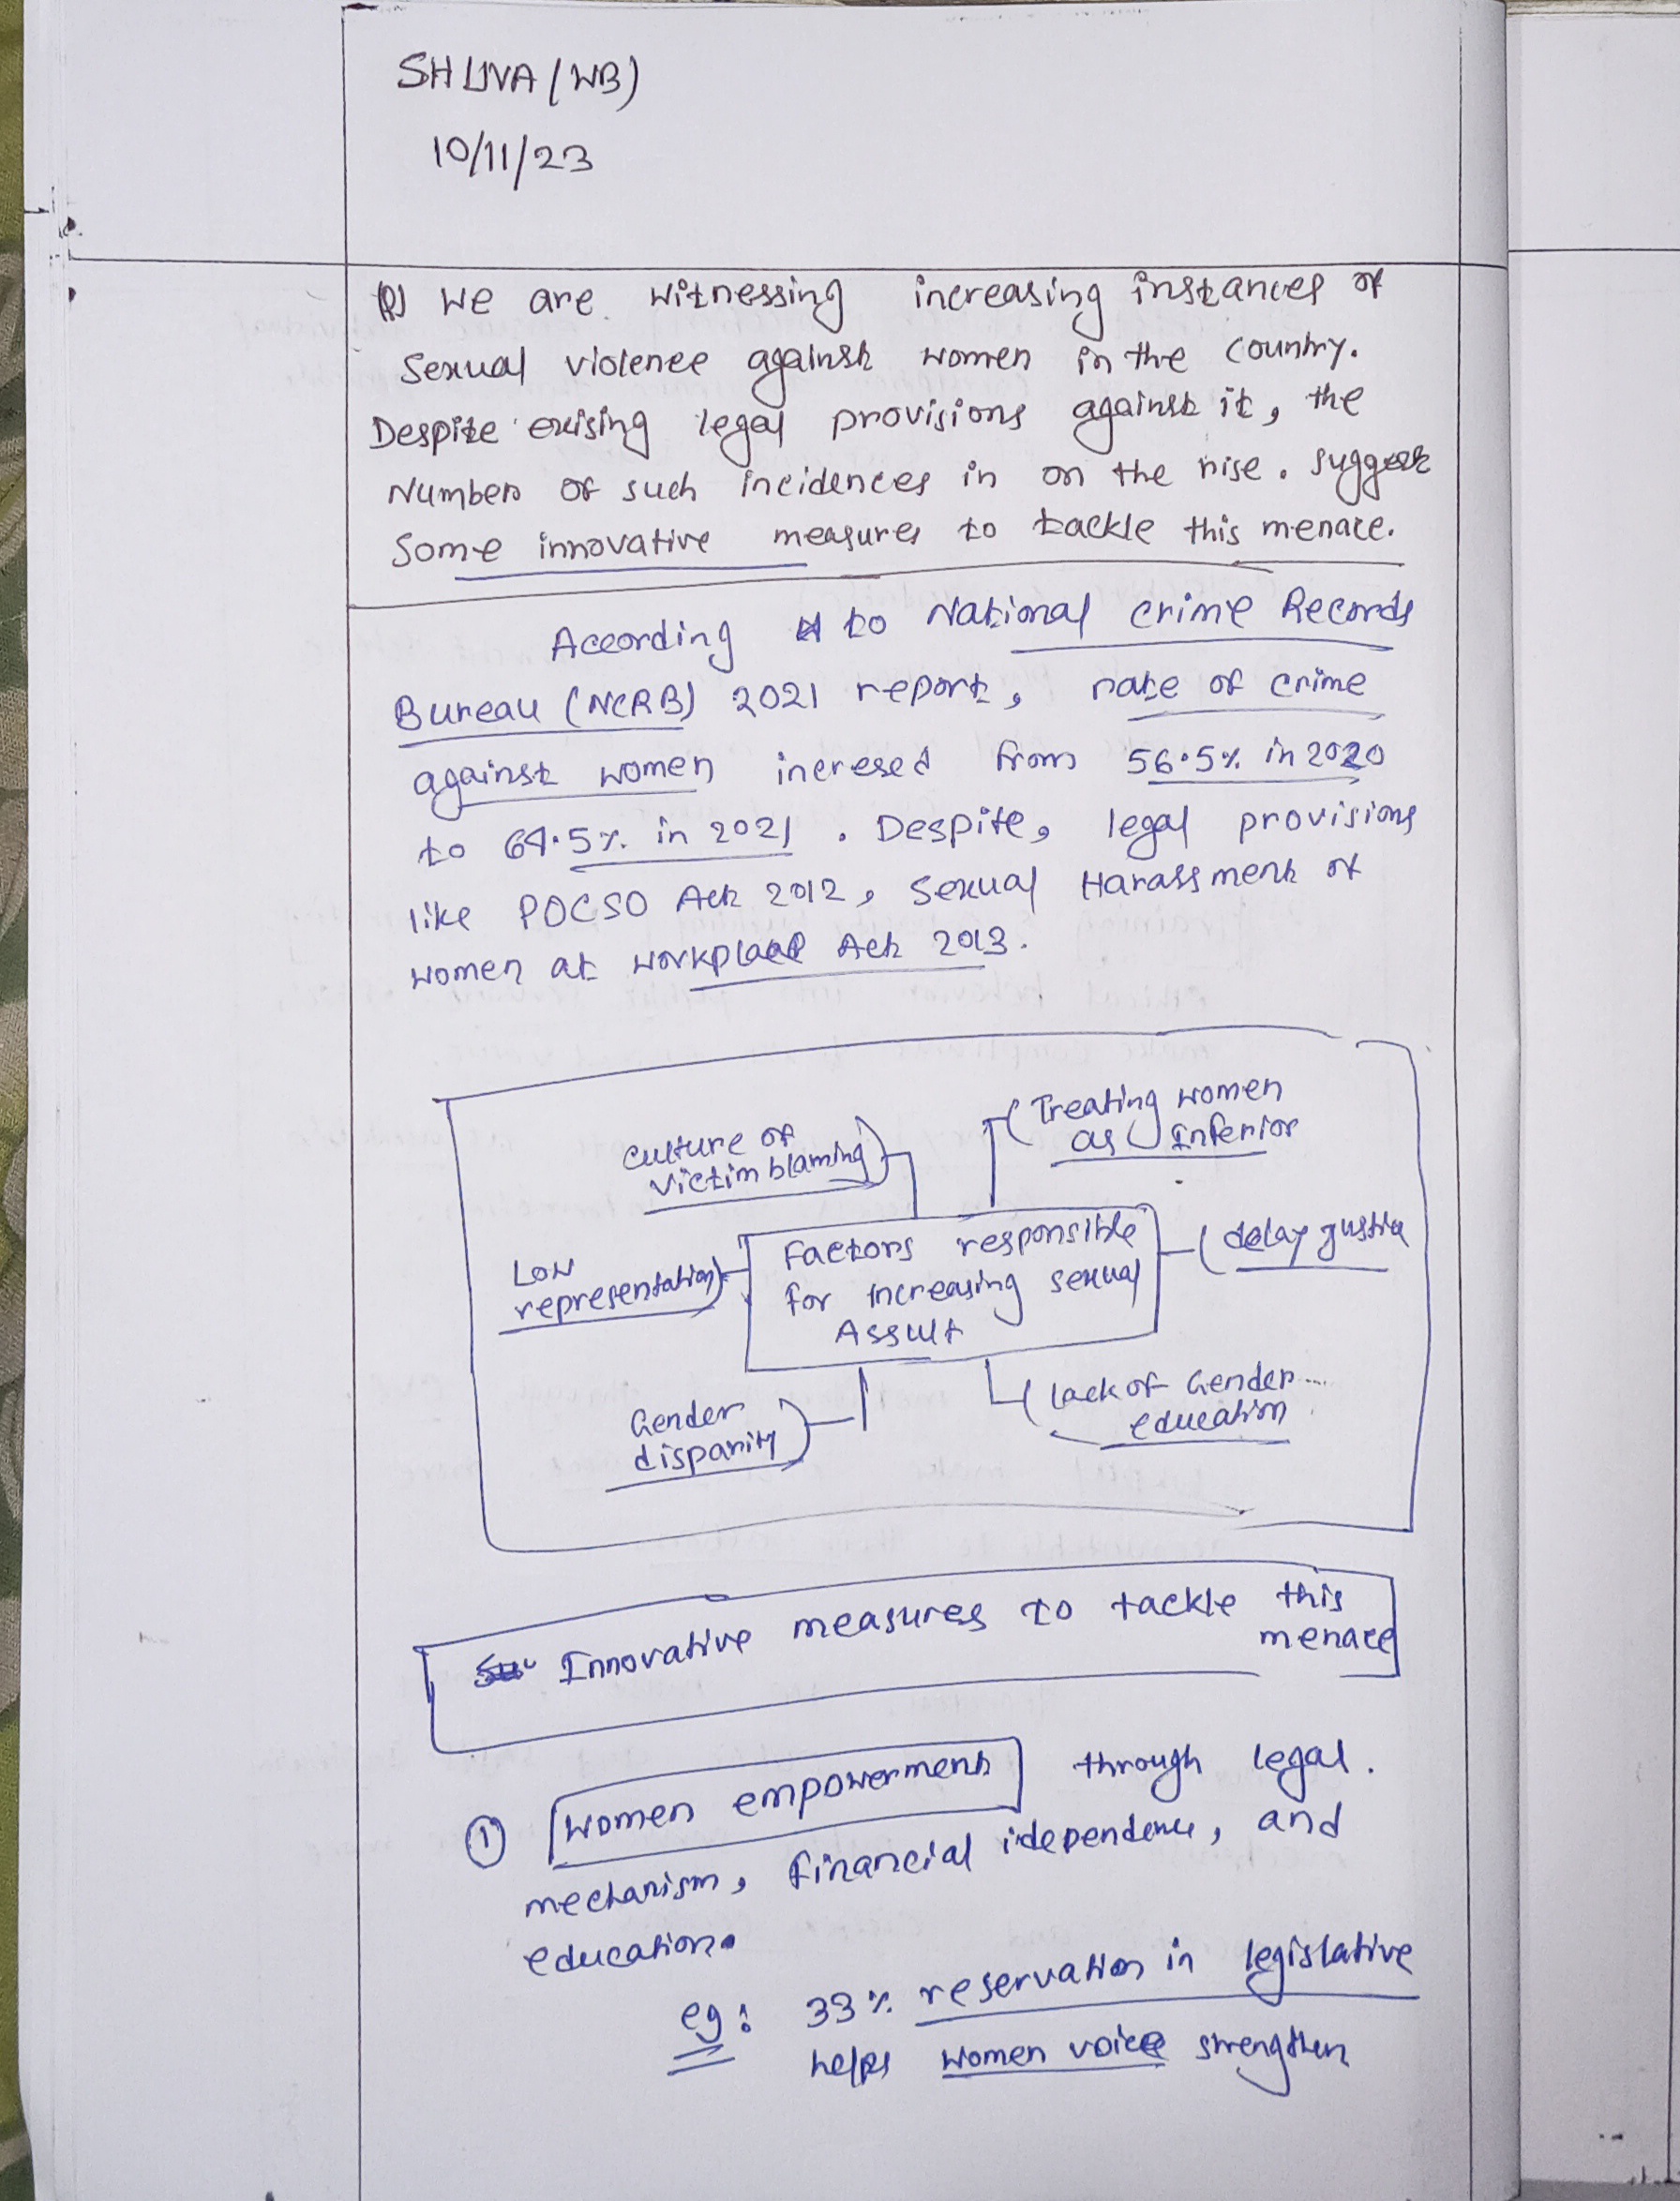 SHUVA (WB)
10/11/23
Q) We are witnessing increasing instances of
Sexual violence against women in the country.
Despite exising legal provisions against it, the
Number of such incidences in on the rise. suggest
Some innovative measures to tackle this menace.
According to National Crime Records
Bureau (NCRB) 2021 report, rate of crime
against women incresed from 56.5% in 2020
to 64.5% in 2021. Despite, legal provisions
like POCSO Act 2012, Sexual Harassment of
women at workplace Act 2013.
Culture of
victim blaming
Treating women
as Inferior
Low
representation
Factors responsible
for increasing sexual
Assult
delay justice
Gender
disparity
lack of Gender
education
Innovative measures to tackle this
menace
1 Women empowerment through legal
mechanism, financial idependence, and
education.
eg: 33% reservation in legislative
helps women voice strengthen